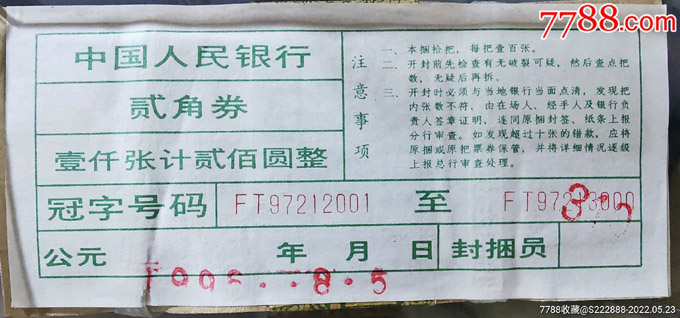 7788.com
中国人民银行
贰角券
壹仟张计贰佰圆整
注意事项
一、本捆拾把,每把壹百张。
二、开封前先检查有无破裂可疑,然后查点把
数,无疑后再拆。
三、开封时必须与当地银行当面点清,发现把
内张数不符,由在场人、经手人及银行负
责人签章证明,连同原捆封签、纸条上报
分行审查。如发现超过十张的错款,应将
原捆或原把票券保管,并将详细情况逐级
上报总行审查处理。
冠字号码 FT97212001 至 FT97213000
公元 年 月 日 封捆员
7788收藏@S222888-2022.05.23